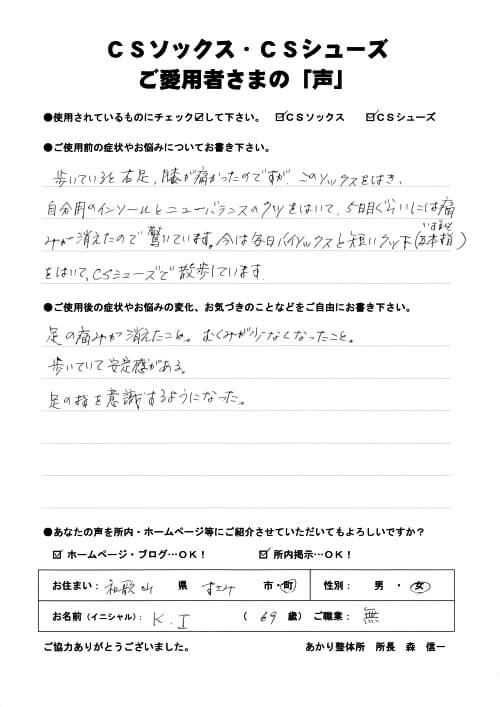 CSソックス・CSシューズ
ご愛用者さまの「声」
●使用されているものにチェック☑して下さい。 ☑CSソックス ☑CSシューズ
●ご使用前の症状やお悩みについてお書き下さい。
歩いていると右足、膝が痛かったのですが、このソックスをはき、
自分用のインソールとニューバランスのクツをはいて、5日目ぐらいには痛
みが消えたので驚いています。今は毎日ハイソックスと短いクツ下(五本指)
をはいて、CSシューズで散歩しています。
●ご使用後の症状やお悩みの変化、お気づきのことなどをご自由にお書き下さい。
足の痛みが消えたこと。むくみが少なくなったこと。
歩いていて安定感がある。
足の指を意識するようになった。
●あなたの声を所内・ホームページ等にご紹介させていただいてもよろしいですか?
☑ホームページ・ブログ…OK! ☑所内掲示…OK!
お住まい: 和歌山 県 すさみ 市・町 性別: 男 ・ 女
お名前(イニシャル): K.I ( 69 歳) ご職業: 無
ご協力ありがとうございました。 あかり整体所 所長 森 信一